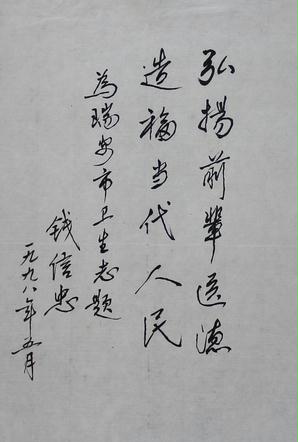 弘揚前輩医德
造福当代人民
為瑞安市卫生志题
钱信忠
一九九八年五月